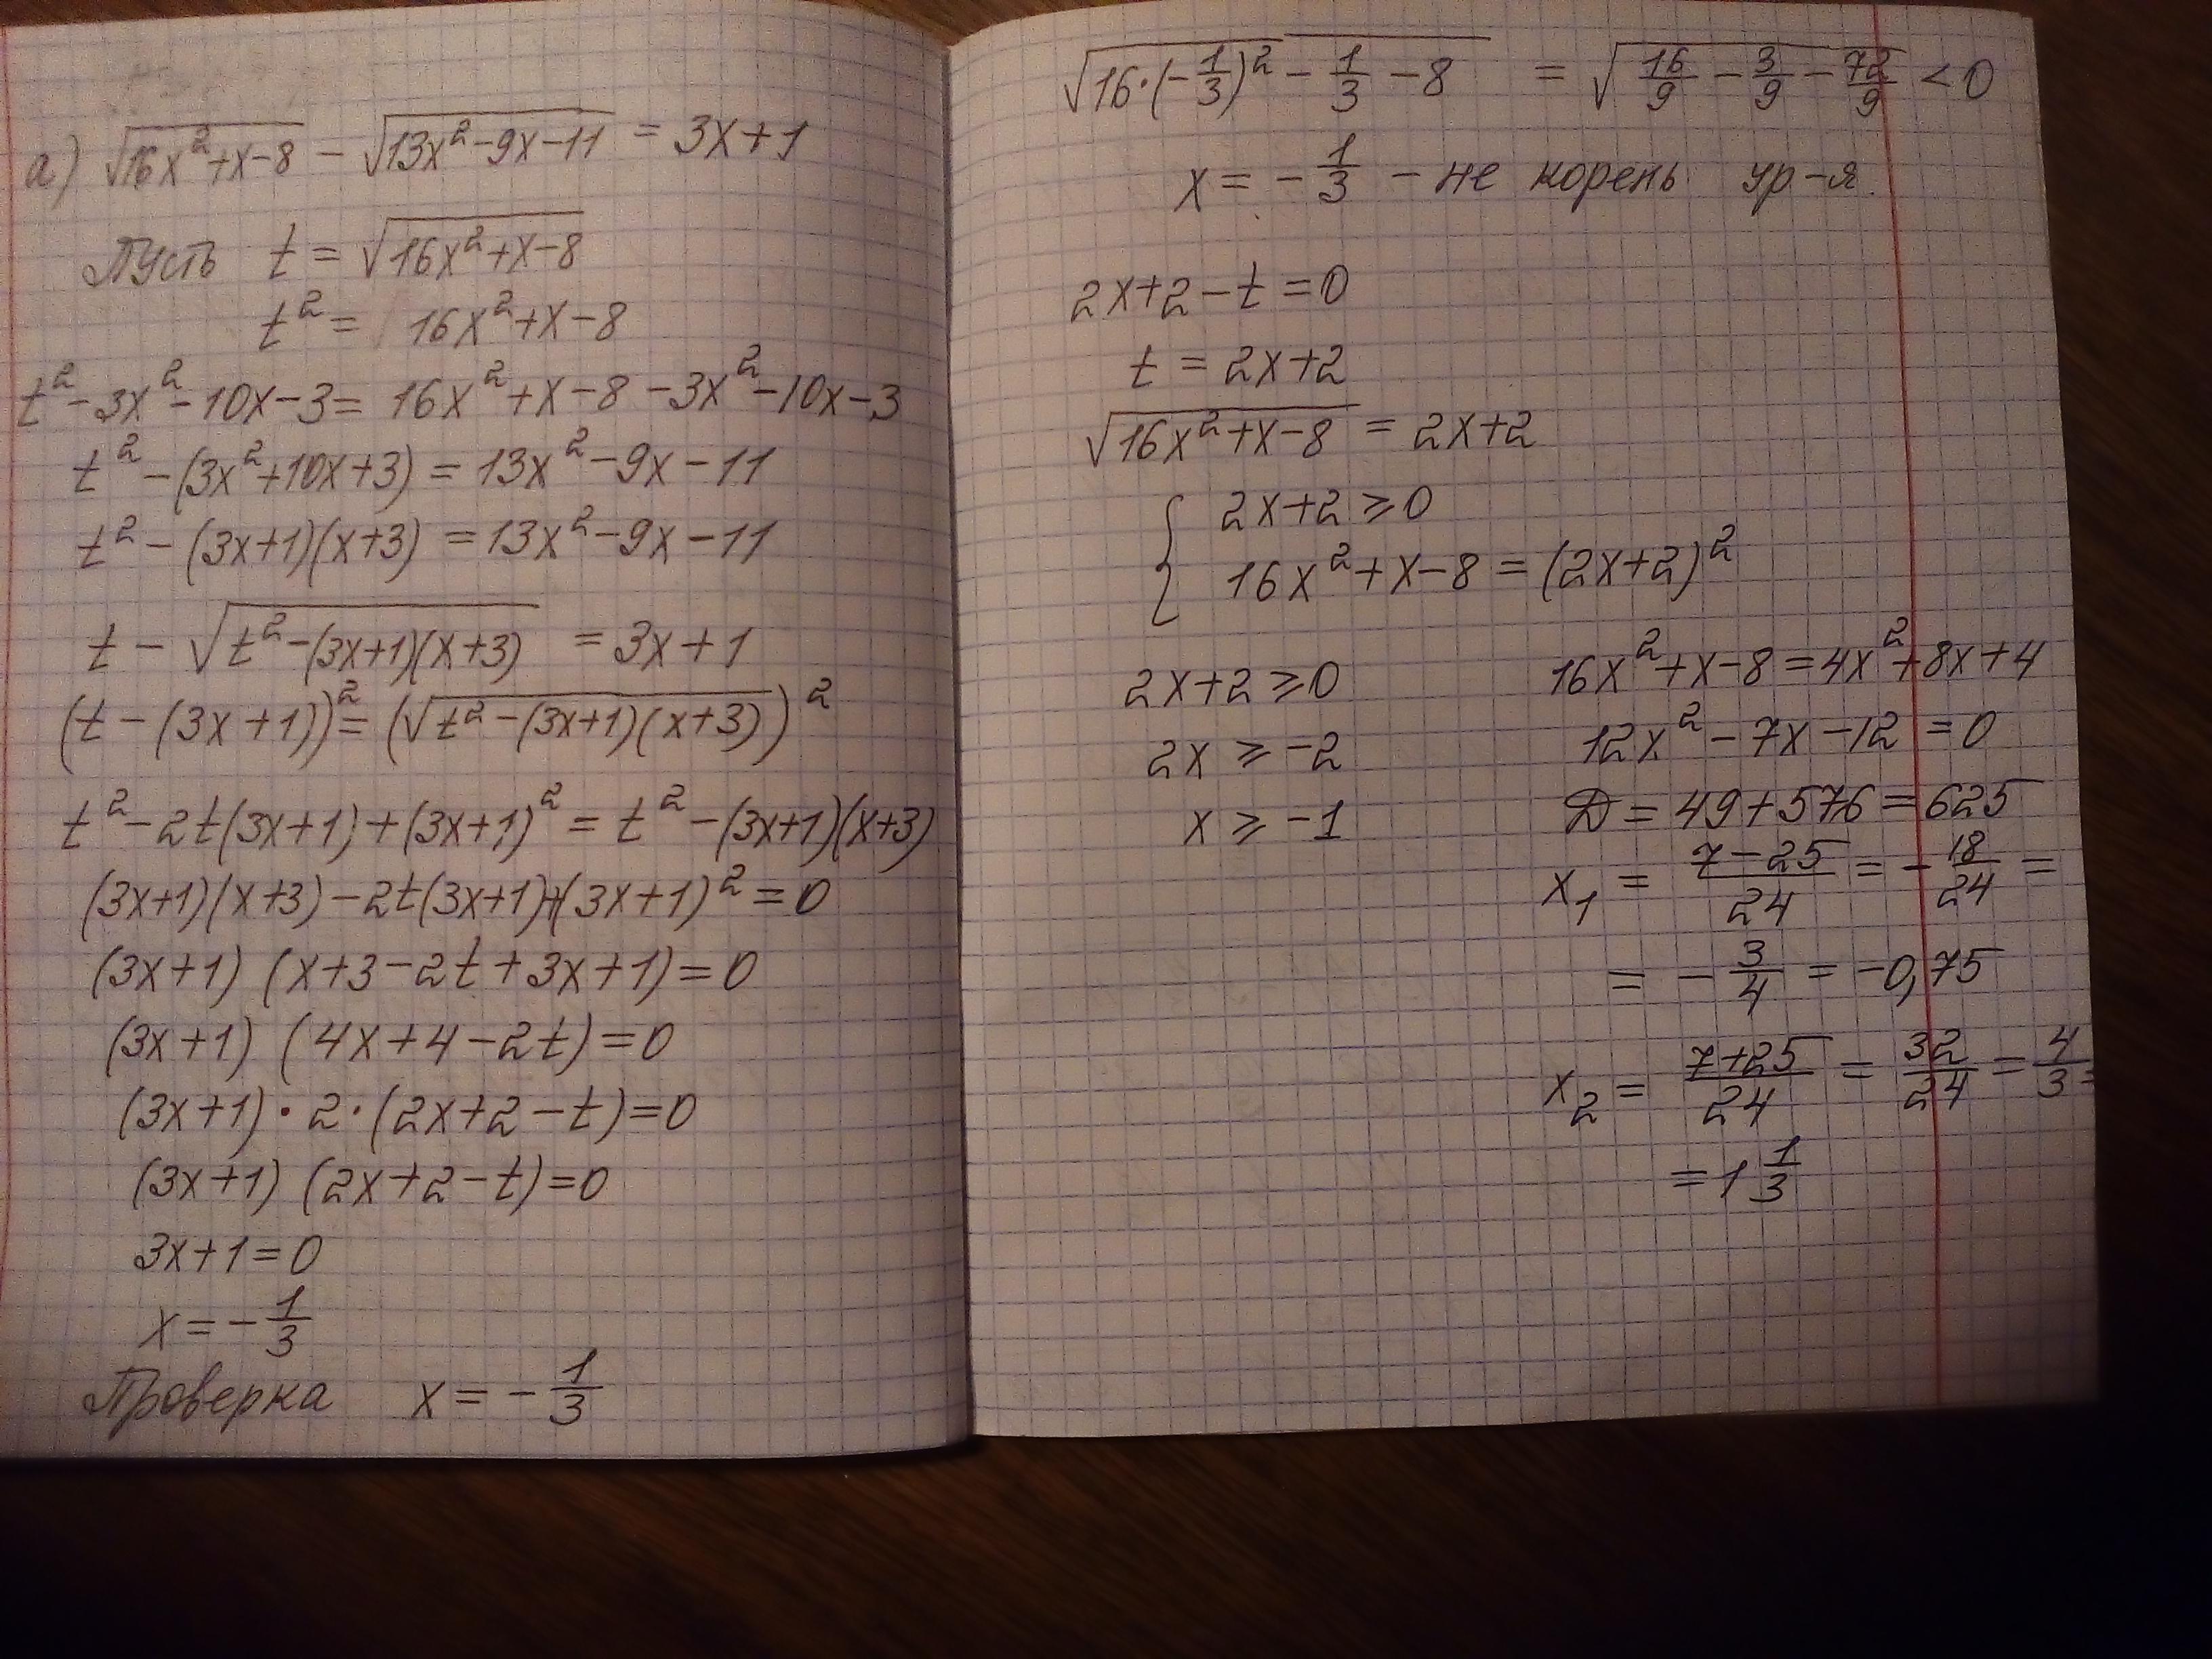 а) √(16x²+x-8) - √(13x²-9x-11) = 3x+1
Пусть t = √(16x²+x-8)
t² = 16x²+x-8
t²-3x²-10x-3 = 16x²+x-8-3x²-10x-3
t²-(3x²+10x+3) = 13x²-9x-11
t²-(3x+1)(x+3) = 13x²-9x-11
t - √(t²-(3x+1)(x+3)) = 3x+1
(t-(3x+1))² = (√(t²-(3x+1)(x+3)))²
t²-2t(3x+1)+(3x+1)² = t²-(3x+1)(x+3)
(3x+1)(x+3)-2t(3x+1)+(3x+1)² = 0
(3x+1)(x+3-2t+3x+1) = 0
(3x+1)(4x+4-2t) = 0
(3x+1)·2·(2x+2-t) = 0
(3x+1)(2x+2-t) = 0
3x+1 = 0
x = -1/3
Проверка x = -1/3
√(16·(-1/3)² - 1/3 - 8) = √(16/9 - 3/9 - 72/9) < 0
x = -1/3 - не корень ур-я.
2x+2-t = 0
t = 2x+2
√(16x²+x-8) = 2x+2
{ 2x+2 ⩾ 0
16x²+x-8 = (2x+2)²
2x+2 ⩾ 0
2x ⩾ -2
x ⩾ -1
16x²+x-8 = 4x²+8x+4
12x²-7x-12 = 0
D = 49+576 = 625
x₁ = (7-25)/24 = -18/24 =
= -3/4 = -0,75
x₂ = (7+25)/24 = 32/24 = 4/3 =
= 1 1/3